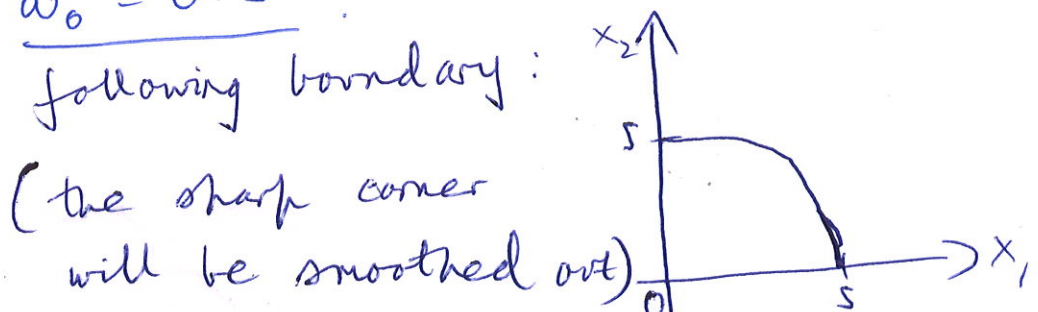 following boundary :
(the sharp corner
will be smoothed out)
x₂
5
0
5
x₁